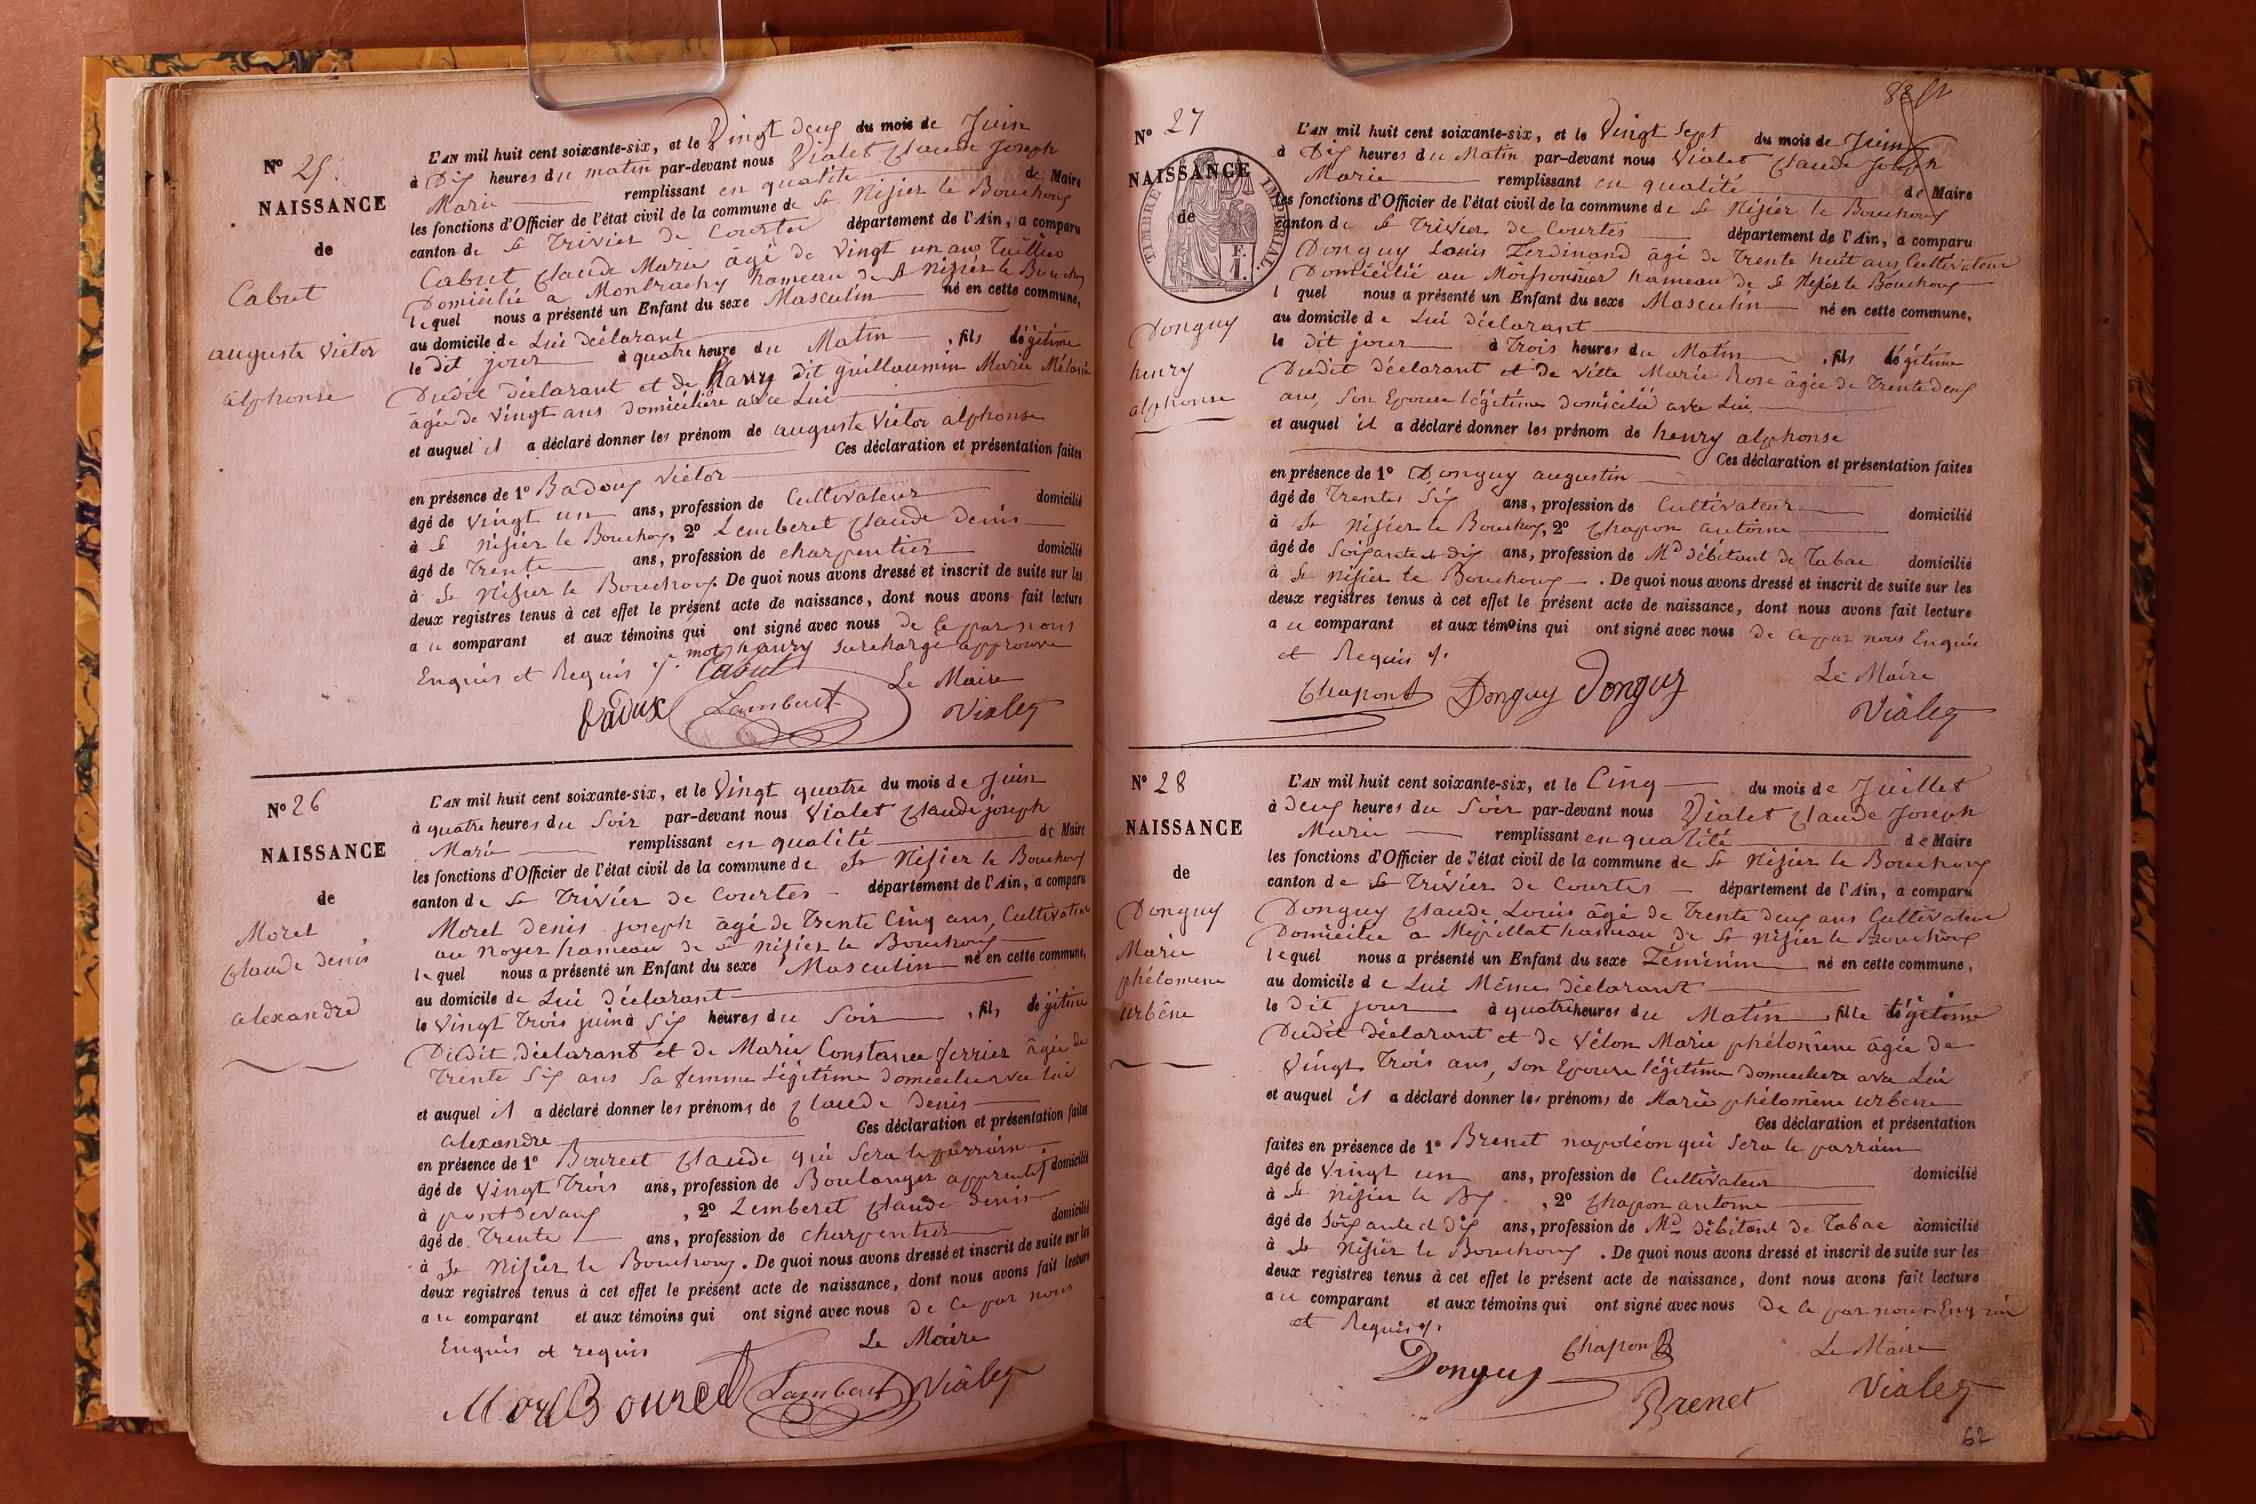 N° 25.
NAISSANCE
de
Cabut
auguste Victor
alphonse
L'AN mil huit cent soixante-six, et le Vingt deux du mois de Juin
à Dix heures du matin par-devant nous Vialet Claude Joseph
Marie remplissant en qualité de Maire
les fonctions d'Officier de l'état civil de la commune de St Nizier le Bouchoux
canton de St Trivier de Courtes département de l'Ain, a comparu
Cabut Claude Marie âgé de Vingt un ans
Domicilié a Montrachy hameau de St Nizier le Bouchoux
lequel nous a présenté un Enfant du sexe Masculin né en cette commune,
au domicile de Lui déclarant
le dit jour à quatre heure du Matin, fils légitime
Dudit déclarant et de haury dit guillaumin Marie Mélanie
âgée de Vingt ans domicilière avec Lui
et auquel il a déclaré donner les prénom de auguste Victor alphonse
Ces déclaration et présentation faites
en présence de 1° Badoux Victor
âgé de Vingt un ans, profession de Cultivateur domicilié
à St Nizier le Bouchoux, 2° Lemberet Claude Denis
âgé de Trente ans, profession de charpentier domicilié
à St Nizier le Bouchoux. De quoi nous avons dressé et inscrit de suite sur les
deux registres tenus à cet effet le présent acte de naissance, dont nous avons fait lecture
au comparant et aux témoins qui ont signé avec nous de ce par nous
Enquis et Requis ./. le mot haury surchargé approuvé
Cabut Le Maire
Badux Lamberet Vialet
N° 26
NAISSANCE
de
Moret
Claude denis
alexandre
L'AN mil huit cent soixante-six, et le Vingt quatre du mois de Juin
à quatre heures du Soir par-devant nous Vialet Claude joseph
Marie remplissant en qualité de Maire
les fonctions d'Officier de l'état civil de la commune de St Nizier le Bouchoux
canton de St Trivier de Courtes département de l'Ain, a comparu
Moret Denis joseph âgé de Trente Cinq ans, Cultivateur
au noyer hameau de St Nizier le Bouchoux
lequel nous a présenté un Enfant du sexe Masculin né en cette commune,
au domicile de Lui déclarant
le Vingt Trois juin à Six heures du Soir, fils légitime
Dudit déclarant et de Marie Constance ferrier âgée de
Trente Six ans Sa femme Légitime domiciliée avec lui
et auquel il a déclaré donner les prénoms de Claude Denis
alexandre Ces déclaration et présentation faites
en présence de 1° Bourcet Claude qui Sera le parrain
âgé de Vingt Trois ans, profession de Boulanger apprentif domicilié
à pontdevaux, 2° Lemberet Claude Denis
âgé de Trente ans, profession de charpentier domicilié
à St Nizier le Bouchoux. De quoi nous avons dressé et inscrit de suite sur les
deux registres tenus à cet effet le présent acte de naissance, dont nous avons fait lecture
au comparant et aux témoins qui ont signé avec nous de ce par nous
Enquis et requis Le Maire
Moret Bourcet Lamberet Vialet
N° 27
NAISSANCE
de
TIMBRE IMPERIAL
F.
1.
Donguy
henry
alphonse
L'AN mil huit cent soixante-six, et le Vingt Sept du mois de Juin
à Dix heures du Matin par-devant nous Vialet Claude Joseph
Marie remplissant en qualité de Maire
les fonctions d'Officier de l'état civil de la commune de St Nizier le Bouchoux
canton de St Trivier de Courtes département de l'Ain, a comparu
Donguy Louis Ferdinand âgé de Trente huit ans Cultivateur
Domicilié au Moissonnier hameau de St Nizier le Bouchoux
lequel nous a présenté un Enfant du sexe Masculin né en cette commune,
au domicile de Lui déclarant
le dit jour à Trois heures du Matin, fils légitime
Dudit déclarant et de Vitte Marie Rose âgée de Trente deux
ans, Son Epouse légitime domicilié avec Lui
et auquel il a déclaré donner les prénom de henry alphonse
Ces déclaration et présentation faites
en présence de 1° Donguy augustin
âgé de Trente Six ans, profession de Cultivateur domicilié
à St Nizier le Bouchoux, 2° Chapon antoine
âgé de Soixante et Dix ans, profession de Md débitant de Tabac domicilié
à St Nizier le Bouchoux. De quoi nous avons dressé et inscrit de suite sur les
deux registres tenus à cet effet le présent acte de naissance, dont nous avons fait lecture
au comparant et aux témoins qui ont signé avec nous de ce par nous Enquis
et Requis ./. Le Maire
Chapon Donguy Donguy Vialet
N° 28
NAISSANCE
de
Donguy
Marie
phélomène
urbène
L'AN mil huit cent soixante-six, et le Cinq du mois de Juillet
à deux heures du Soir par-devant nous Vialet Claude Joseph
Marie remplissant en qualité de Maire
les fonctions d'Officier de l'état civil de la commune de St Nizier le Bouchoux
canton de St Trivier de Courtes département de l'Ain, a comparu
Donguy Claude Louis âgé de Trente deux ans Cultivateur
Domicilié a Mépillat hameau de St Nizier le Bouchoux
lequel nous a présenté un Enfant du sexe Féminin né en cette commune,
au domicile de Lui Même déclarant
le Dit jour à quatre heures du Matin, fille légitime
Dudit déclarant et de Vélon Marie phélomène âgée de
Vingt Trois ans, Son Epouse légitime domiciliée avec Lui
et auquel il a déclaré donner les prénoms de Marie phélomène urbène
Ces déclaration et présentation
faites en présence de 1° Brenet napoléon qui Sera le parrain
âgé de Vingt un ans, profession de Cultivateur domicilié
à St Nizier le Bx, 2° Chapon antoine
âgé de Soixante et Dix ans, profession de Md débitant de Tabac domicilié
à St Nizier le Bouchoux. De quoi nous avons dressé et inscrit de suite sur les
deux registres tenus à cet effet le présent acte de naissance, dont nous avons fait lecture
au comparant et aux témoins qui ont signé avec nous De ce par nous Enquis
et Requis ./. Chapon Le Maire
Donguy Brenet Vialet
62